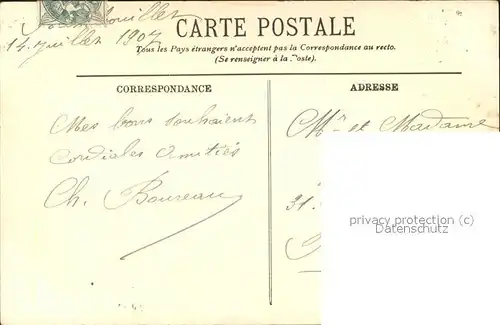 14 juillet 1907
CARTE POSTALE
Tous les Pays étrangers n'acceptent pas la Correspondance au recto.
(Se renseigner à la Poste).
CORRESPONDANCE
ADRESSE
Mes bons souhaient
Cordiales Amitiés
Ch.
Mr et Madame
31.
privacy protection (c)
Datenschutz